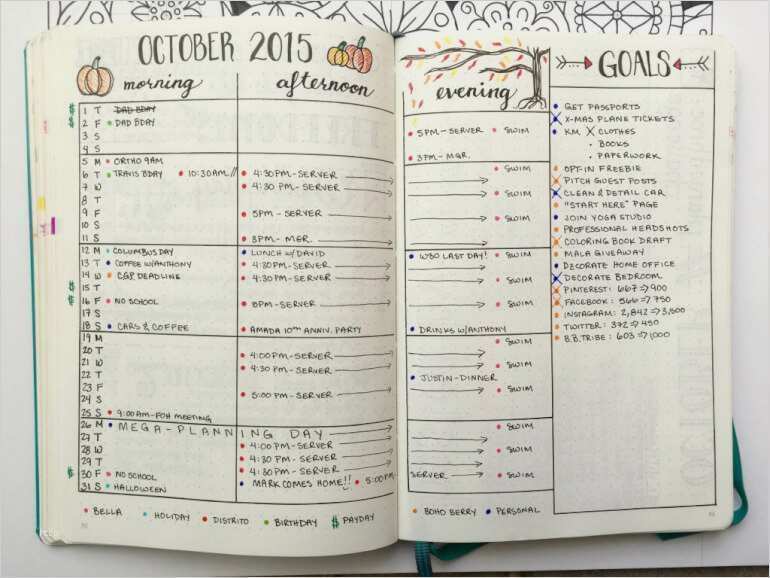 OCTOBER 2015
morning
afternoon
$ 1 T DAD BDAY
$ 2 F DAD BDAY
3 S
4 S
5 M ORTHO 9AM
6 T TRAVIS BDAY 10:30AM// 4:30PM-SERVER
7 W 4:30 PM-SERVER
8 T
9 F 5PM - SERVER
10 S
11 S 3PM- MGR.
12 M COLUMBUS DAY LUNCH W/DAVID
13 T COFFEE W/ANTHONY 4:30PM-SERVER
14 W C&P DEADLINE 4:30PM-SERVER
$ 15 T
$ 16 F NO SCHOOL 5PM-SERVER
17 S
18 S CARS & COFFEE AMADA 10TH ANNIV. PARTY
19 M
20 T 4:00PM-SERVER
21 W 4:30 PM-SERVER
22 T
23 F 5:00 PM-SERVER
24 S
25 S 9:00AM-FOH MEETING
26 M MEGA-PLANNING DAY
27 T 4:00PM-SERVER
28 W 4:30 PM-SERVER
29 T 4:30 PM-SERVER
$ 30 F NO SCHOOL MARK COMES HOME!! 5:00PM
31 S HALLOWEEN
BELLA HOLIDAY DISTRITO BIRTHDAY $ PAYDAY
evening
5PM-SERVER SWIM
3PM-MGR.
SWIM
SWIM
SWIM
W80 LAST DAY! SWIM
SWIM
SWIM
DRINKS W/ANTHONY
SWIM
SWIM
JUSTIN-DINNER
SWIM
SWIM
SWIM
SWIM
SERVER SWIM
BOHO BERRY PERSONAL
GOALS
GET PASSPORTS
X-MAS PLANE TICKETS
KM X CLOTHES
• BOOKS
• PAPERWORK
OPT-IN FREEBIE
PITCH GUEST POSTS
CLEAN & DETAIL CAR
"START HERE" PAGE
JOIN YOGA STUDIO
PROFESSIONAL HEADSHOTS
COLORING BOOK DRAFT
MALA GIVEAWAY
DECORATE HOME OFFICE
DECORATE BEDROOM
PINTEREST: 667⇒900
FACEBOOK: 566⇒750
INSTAGRAM: 2,842⇒3,500
TWITTER: 372⇒450
B.B.TRIBE: 603⇒1000